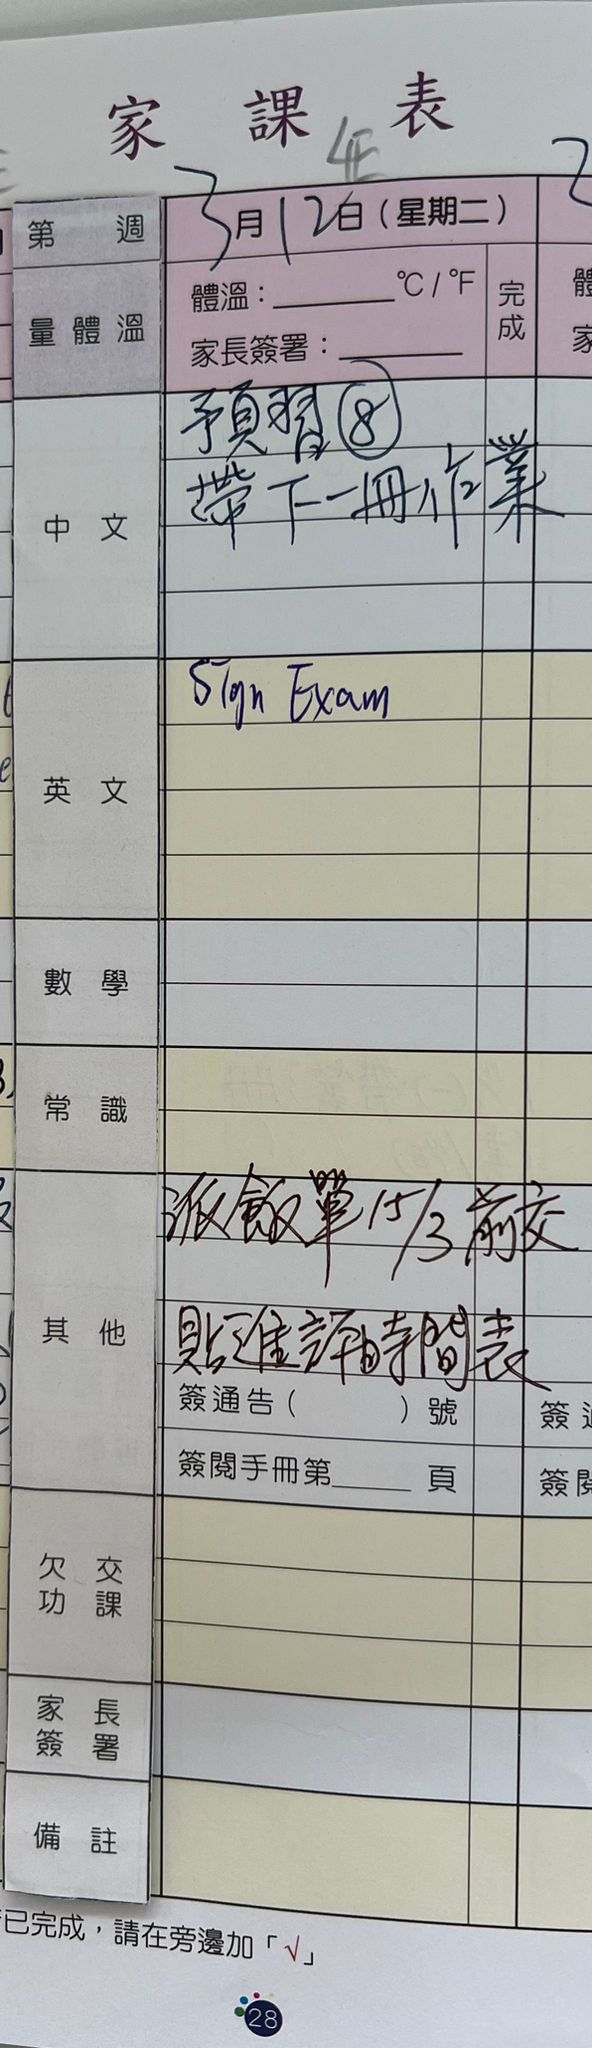 家課表
4E
第 週
3月12日(星期二)
量體溫
體溫：______°C/°F
家長簽署：______
完成
中文
預習⑧
帶下一冊作業
英文
Sign Exam
數學
常識
其他
派飯單 15/3前交
貼進評時間表
簽通告( )號
簽閱手冊第____頁
欠交功課
家長簽署
備註
已完成，請在旁邊加「√」
28